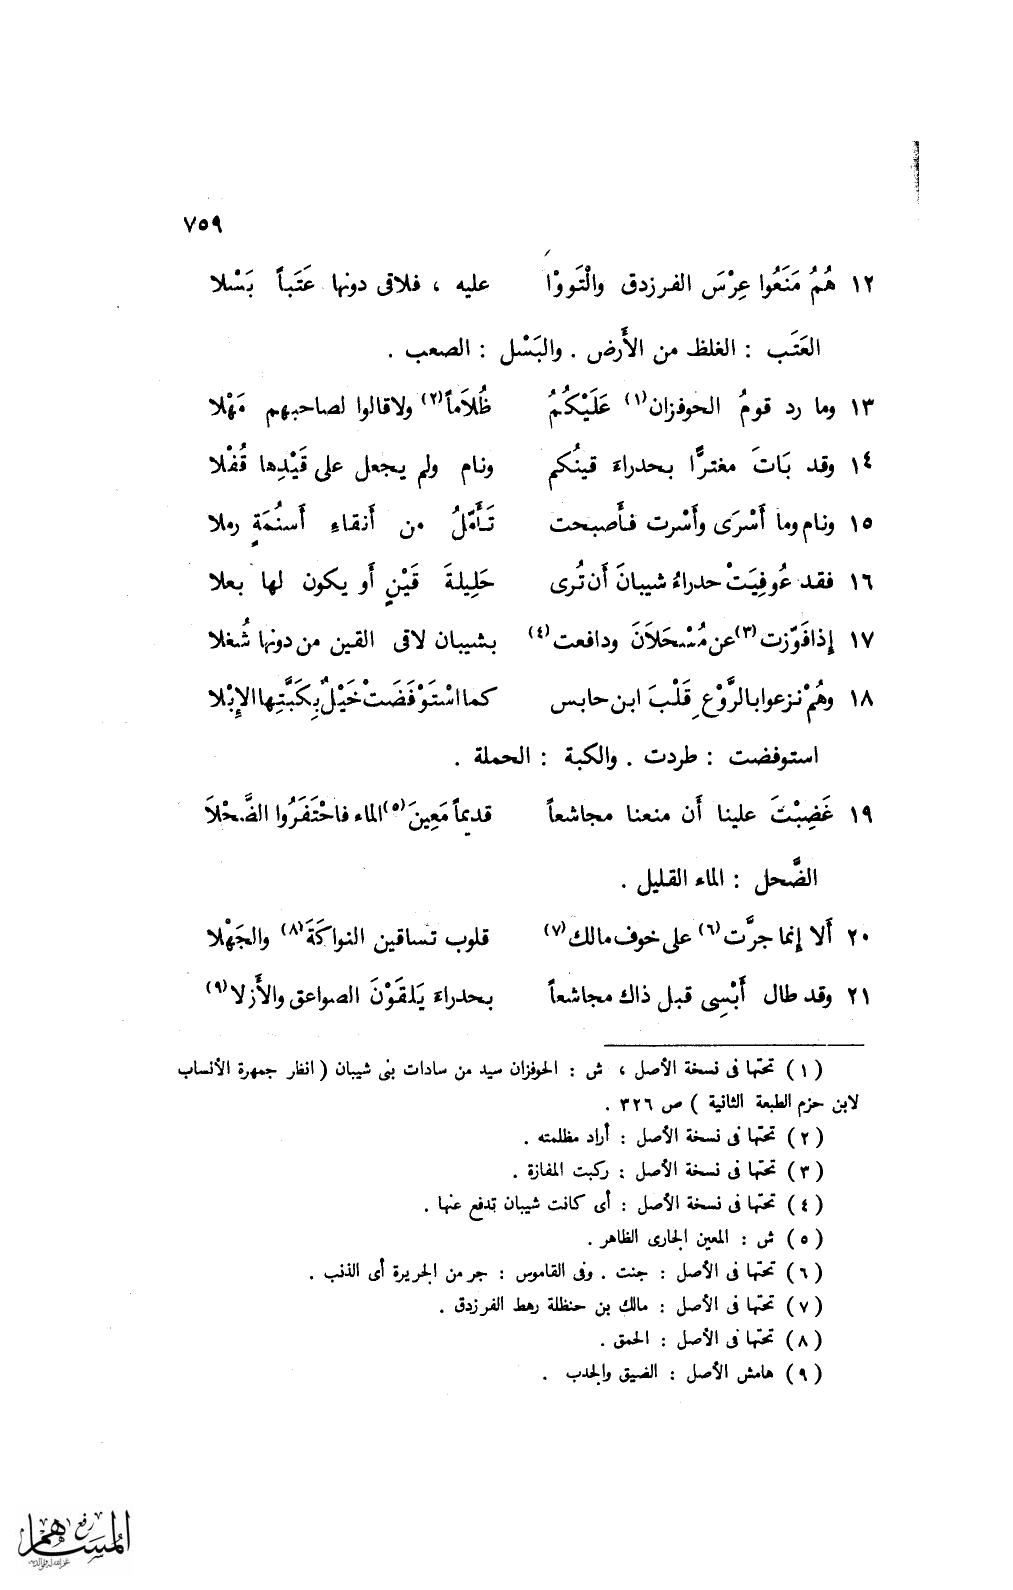 ٧٥٩
١٢ هُمُ مَنَعُوا عِرْسَ الفرزدق والْتَووْا عليه ، فلاقى دونها عَتَباً بَسْلا
العَتَب : الغلظ من الأَرض . والبَسْل : الصعب .
١٣ وما رد قومُ الحوفزان(١) عَلَيْكُمُ ظُلَاماً(٢) ولاقالوا لصاحبهم مَهْلا
١٤ وقد بَاتَ مغترًّا بحدراءَ قينُكم ونام ولم يجعل على قَيْدِها قُفْلا
١٥ ونام وما أَسْرَى وأَسْرت فأَصبحت تَأَمَّلُ من أَنقاءِ أَسنُمَةٍ رملا
١٦ فقد عُوفِيَتْ حدراءُ شيبانَ أَن تُرى حَلِيلةَ قَيْنٍ أَو يكون لها بعلا
١٧ إِذافَوّزت(٣) عن مُسْحَلاَنَ ودافعت(٤) بشيبان لاقى القين من دونها شُغلا
١٨ وهُمْ نزعوا بالرَّوْعِ قَلْبَ ابن حابس كما اسْتَوْفَضَتْ خَيْلٌ بِكَبَّتِها الإِبْلا
استوفضت : طردت . والكبة : الحملة .
١٩ غَضِبْتَ علينا أَن منعنا مجاشعاً قديماً مَعِينَ(٥) الماء فاحْتَفَرُوا الضَّحْلاَ
الضَّحل : الماء القليل .
٢٠ أَلا إِنما جرَّت(٦) على خوف مالك(٧) قلوب تساقين النواكَةَ(٨) والجَهْلا
٢١ وقد طال أَبْسِى قبل ذاك مجاشعاً بحدراءَ يَلقَوْنَ الصواعق والأَزلا(٩)
(١) تحتها فى نسخة الأصل ، ش : الحوفزان سيد من سادات بنى شيبان ( انظر جمهرة الأنساب
لابن حزم الطبعة الثانية ) ص ٣٢٦ .
(٢) تحتها فى نسخة الأصل : أراد مظلمته .
(٣) تحتها فى نسخة الأصل : ركبت المفازة .
(٤) تحتها فى نسخة الأصل : أى كانت شيبان تدفع عنها .
(٥) ش : المعين الجارى الظاهر .
(٦) تحتها فى الأصل : جنت . وفى القاموس : جر من الجريرة أى الذنب .
(٧) تحتها فى الأصل : مالك بن حنظلة رهط الفرزدق .
(٨) تحتها فى الأصل : الحمق .
(٩) هامش الأصل : الضيق والجدب .
رفع
المساهم